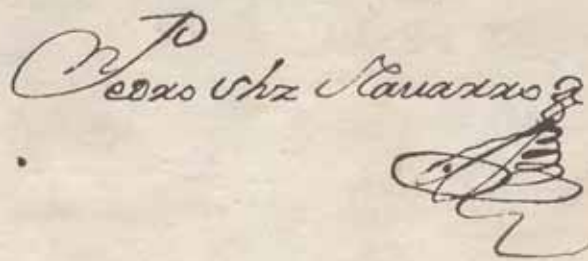 Pedro Shz Nauarro